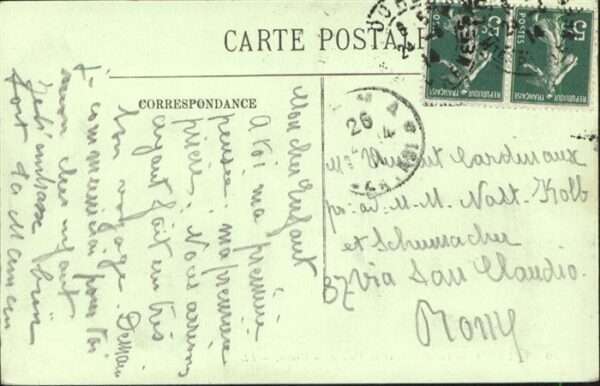 CARTE POSTALE
CORRESPONDANCE
Mon cher Enfant
A toi ma première
pensée, ma première
prière. Nous arrivons
ayant fait un très
bon voyage. Demain
je communierai pour toi
mon cher enfant
Je t'embrasse bien
fort ta Maman
POSTES
5c
REPUBLIQUE FRANÇAISE
POSTES
5c
REPUBLIQUE FRANÇAISE
26
4
Mr Vincent Cardinaux
pr. ad. M. M. Nast. Kolb
et Schumacher
37 Via San Claudio.
Rome